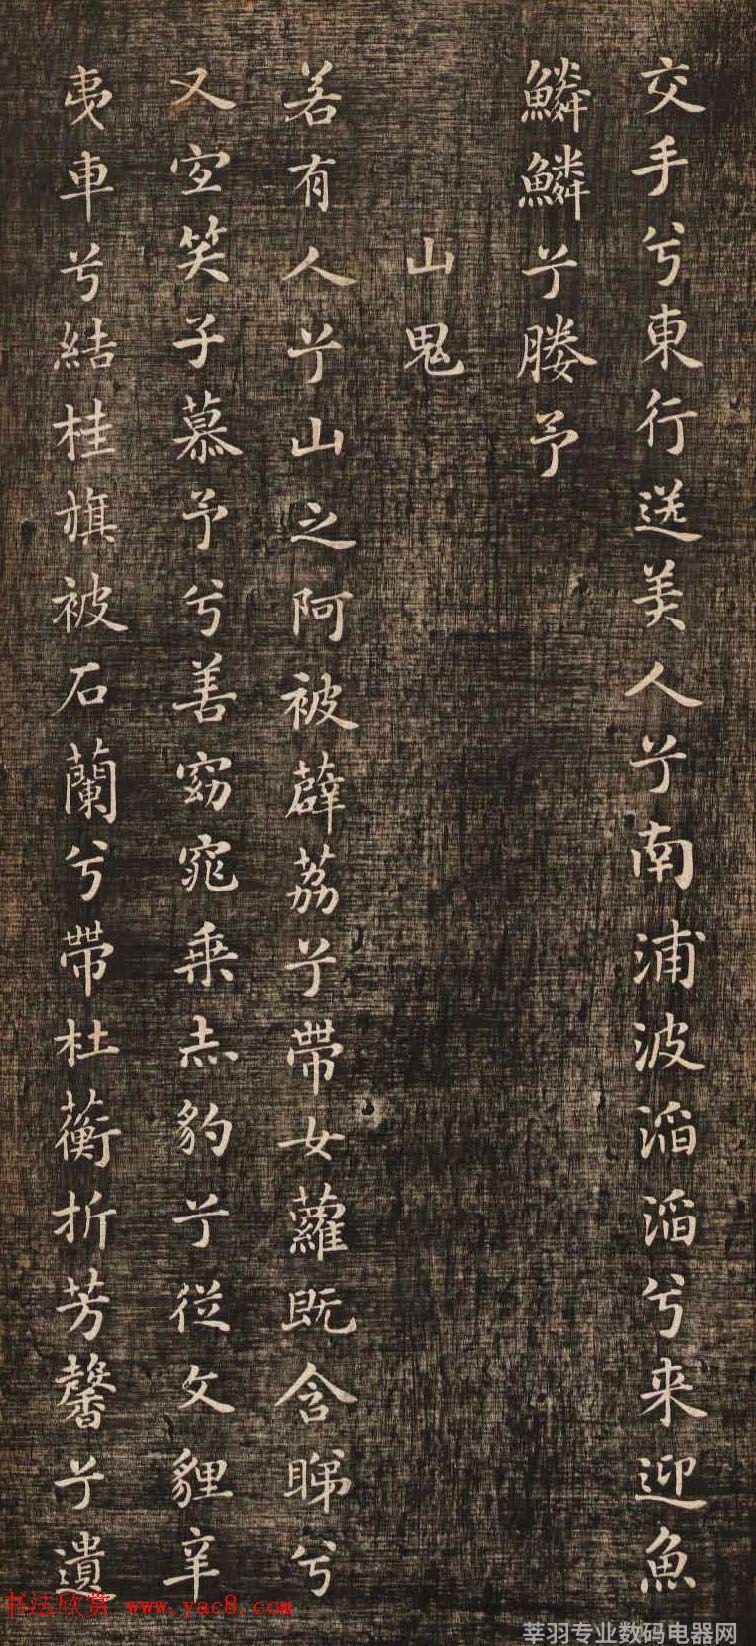 交手兮東行送美人兮南浦波滔滔兮来迎魚
鱗鱗兮媵予
山鬼
若有人兮山之阿被薜荔兮帶女蘿既含睇兮
又宜笑子慕予兮善窈窕乘赤豹兮從文貍辛
夷車兮結桂旗被石蘭兮帶杜蘅折芳馨兮遺
书法欣赏 www.yac8.com
莘羽专业数码电器网